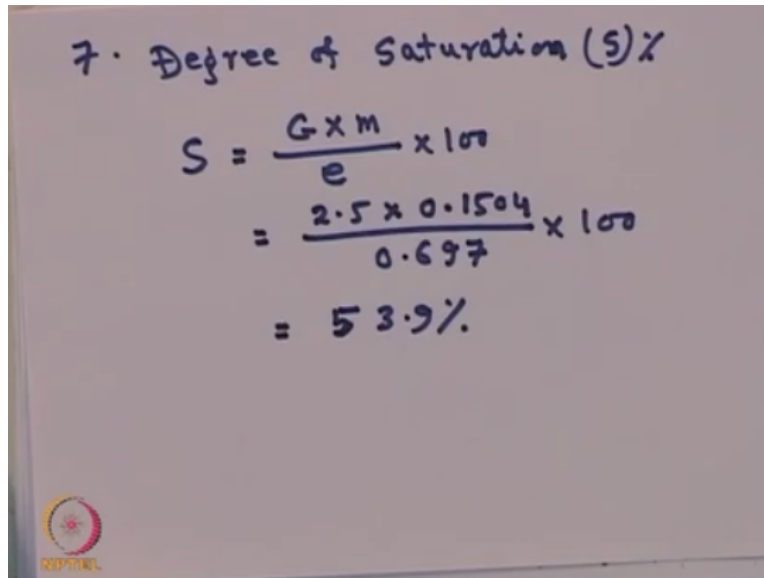 7. Degree of Saturation (S)%
S = G×m / e × 100
= 2.5 × 0.1504 / 0.697 × 100
= 53.9%.
NPTEL